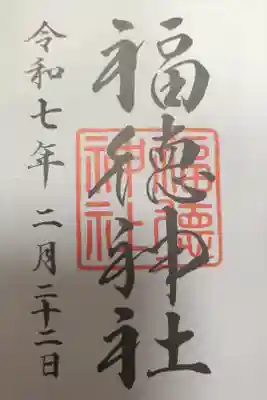 福徳神社
福徳神社
令和七年 二月二十二日